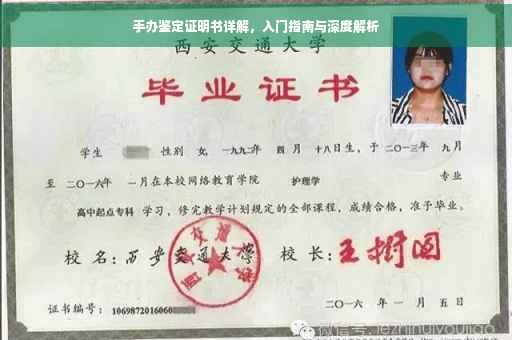 手办鉴定证明书详解，入门指南与深度解析
西安交通大学
毕业证书
学生 性别 女，一九九二年 四月 十八日生，于二〇一三年 九月
至 二〇一六年 一月在本校网络教育学院 护理学 专业
高中起点专科 学习，修完教学计划规定的全部课程，成绩合格，准予毕业。
校名：西安交通大学 校长：王树国
西安交通大学
证书编号：1069872016060
二〇一六年 一月 五日
微信号:jezhihuiyoujiao